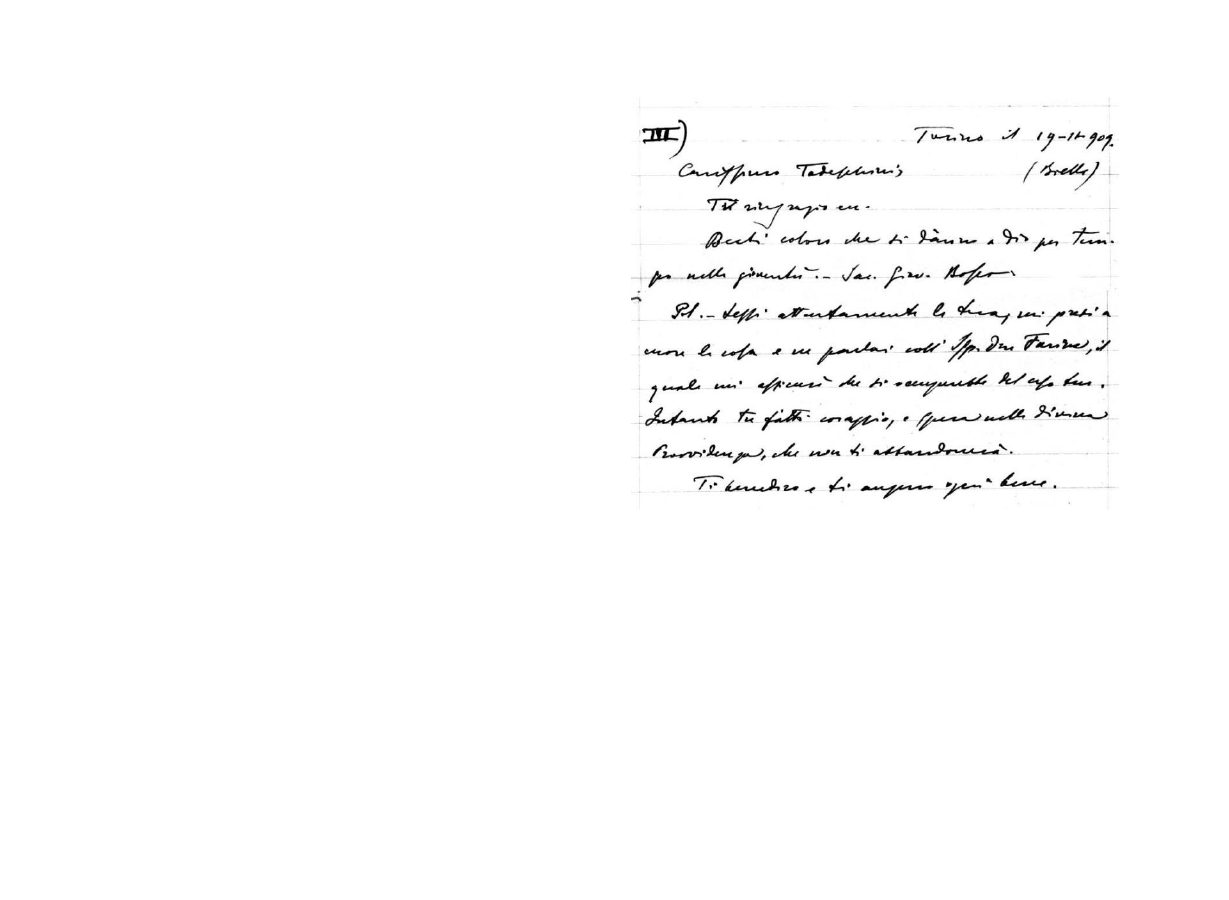 III) Torino il 19-11-909.
Carissimo Tadeschini, (Biella)
Ti ringrazio
Beati coloro che si dànno a Dio per tem-
po nella gioventù. – Sac. Giov. Bosco.
PS. – Lessi attentamente la tua, mi presi a
cuore la cosa e ne parlai coll' Isp. Don Farina, il
quale mi assicurò che si occuperebbe del caso tuo.
Intanto tu fatti coraggio, e spera nella divina
Provvidenza, che non ti abbandonerà.
Ti benedico e ti auguro ogni bene.